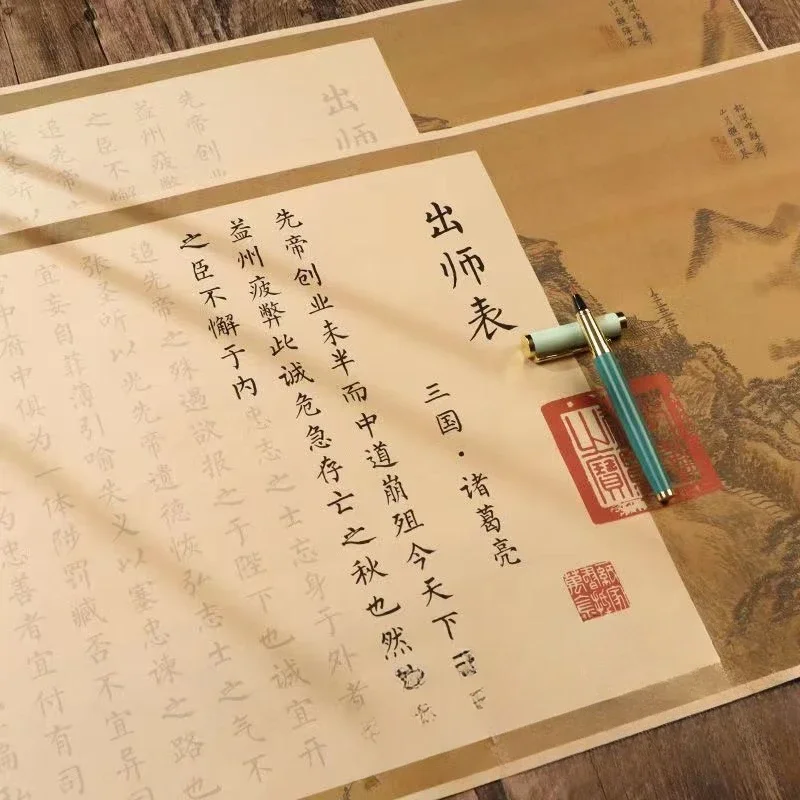 出师表
三国·诸葛亮
先帝创业未半而中道崩殂今天下
益州疲弊此诚危急存亡之秋也然
之臣不懈于内忠志之士忘身于外者
追先帝之殊遇欲报之于陛下也诚宜开
张圣听以光先帝遗德恢弘志士之气不
宜妄自菲薄引喻失义以塞忠谏之路也
中府中俱为一体陟罚臧否不宜异同
为忠善者宜付有司
偏
出师
先帝创业
益州疲弊
之臣不懈
追先帝之
张圣听以
之寶